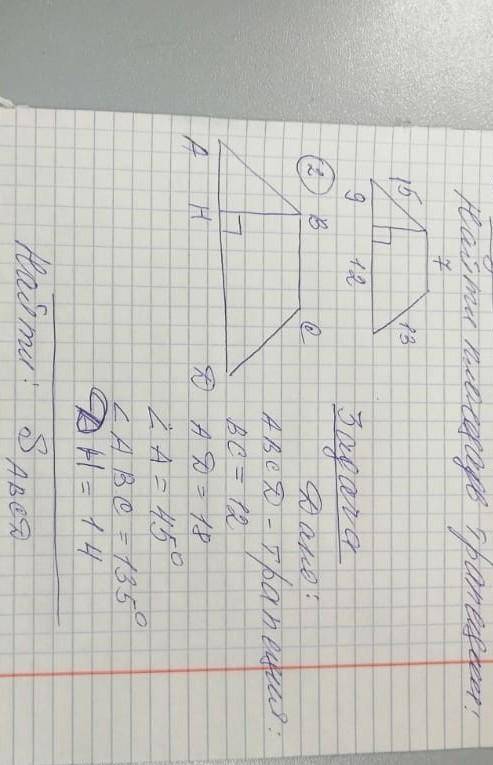 Найти площадь трапеции:
15
7
13
9
12
②
B
C
A
H
D
Задача
Дано:
ABCD - трапеция:
BC = 12
AD = 18
∠A = 45°
∠ABC = 135°
DH = 14
Найти: S ABCD